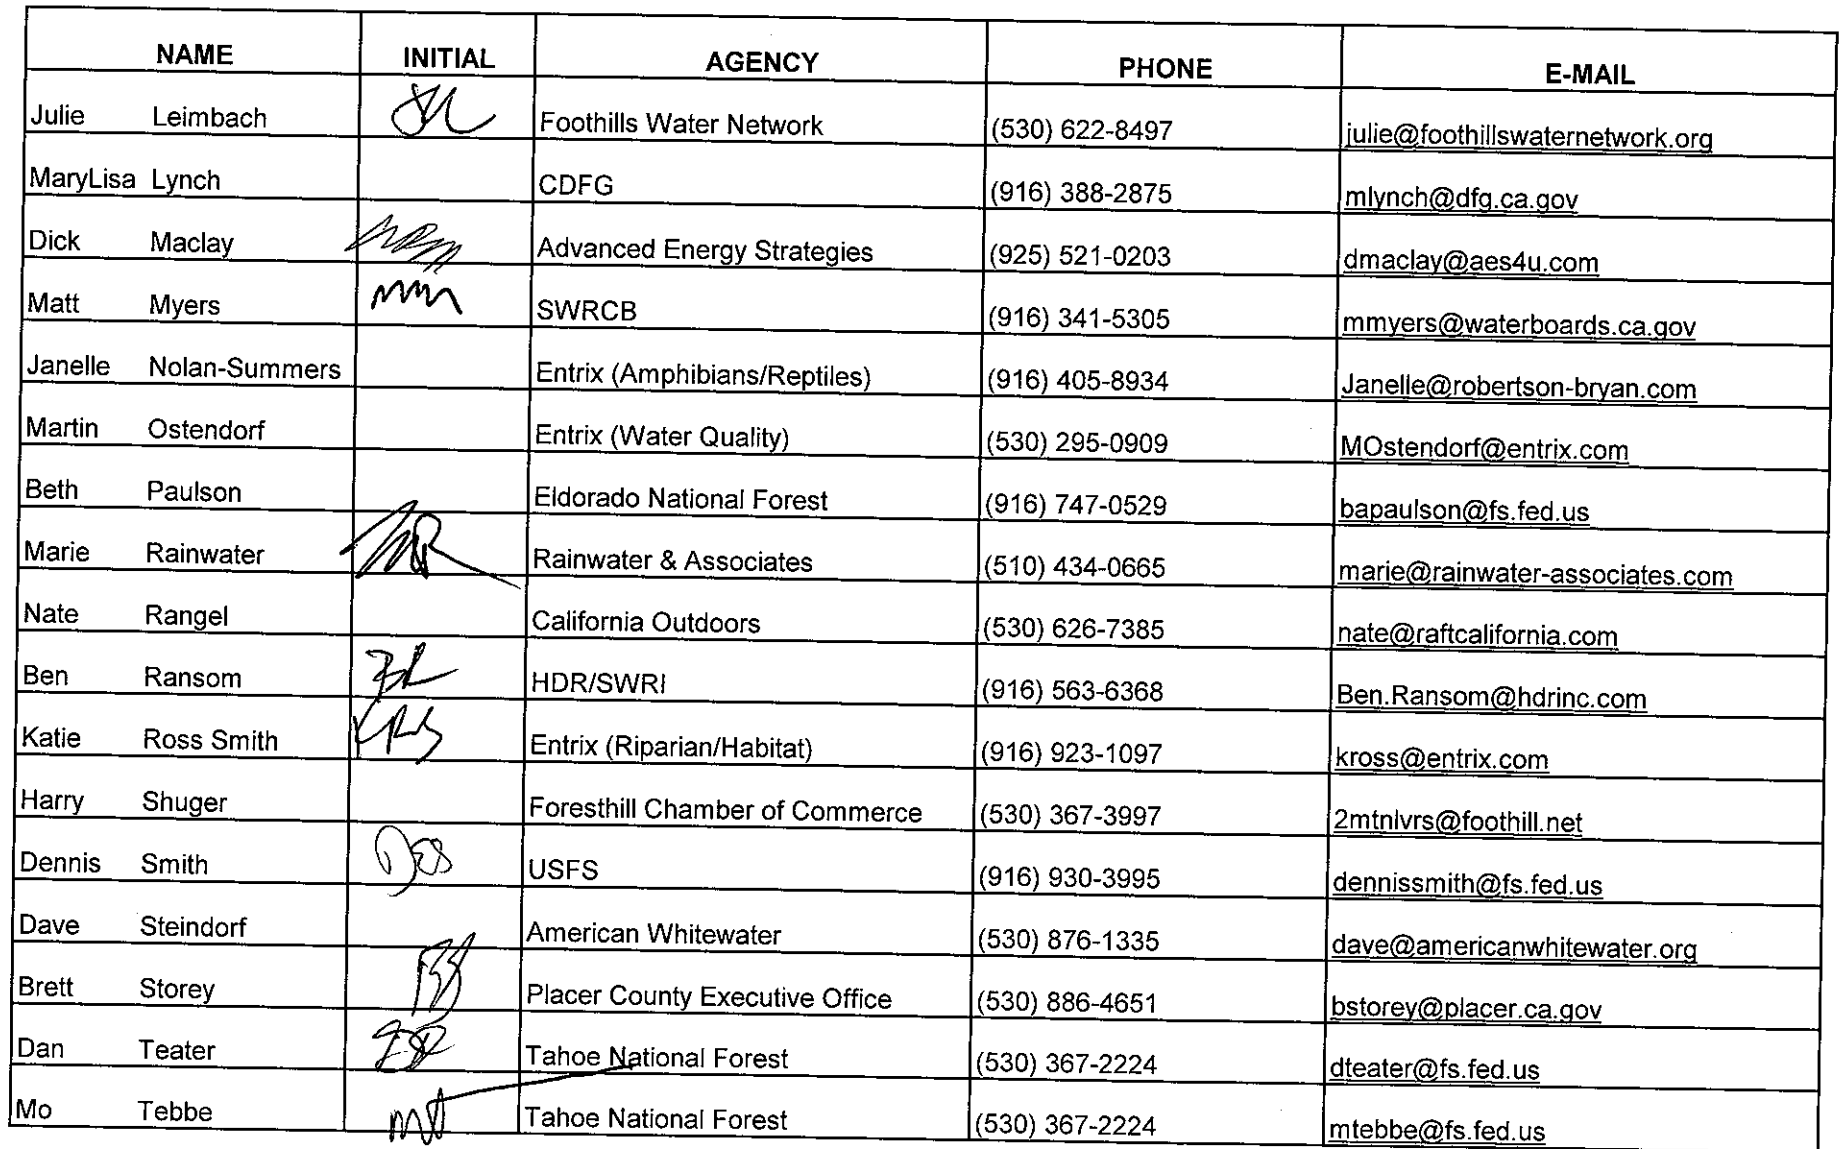 NAME INITIAL AGENCY PHONE E-MAIL
Julie Leimbach JL Foothills Water Network (530) 622-8497 julie@foothillswaternetwork.org
MaryLisa Lynch CDFG (916) 388-2875 mlynch@dfg.ca.gov
Dick Maclay Advanced Energy Strategies (925) 521-0203 dmaclay@aes4u.com
Matt Myers SWRCB (916) 341-5305 mmyers@waterboards.ca.gov
Janelle Nolan-Summers Entrix (Amphibians/Reptiles) (916) 405-8934 Janelle@robertson-bryan.com
Martin Ostendorf Entrix (Water Quality) (530) 295-0909 MOstendorf@entrix.com
Beth Paulson Eldorado National Forest (916) 747-0529 bapaulson@fs.fed.us
Marie Rainwater Rainwater & Associates (510) 434-0665 marie@rainwater-associates.com
Nate Rangel California Outdoors (530) 626-7385 nate@raftcalifornia.com
Ben Ransom HDR/SWRI (916) 563-6368 Ben.Ransom@hdrinc.com
Katie Ross Smith KRS Entrix (Riparian/Habitat) (916) 923-1097 kross@entrix.com
Harry Shuger Foresthill Chamber of Commerce (530) 367-3997 2mtnlvrs@foothill.net
Dennis Smith USFS (916) 930-3995 dennissmith@fs.fed.us
Dave Steindorf American Whitewater (530) 876-1335 dave@americanwhitewater.org
Brett Storey Placer County Executive Office (530) 886-4651 bstorey@placer.ca.gov
Dan Teater Tahoe National Forest (530) 367-2224 dteater@fs.fed.us
Mo Tebbe mt Tahoe National Forest (530) 367-2224 mtebbe@fs.fed.us